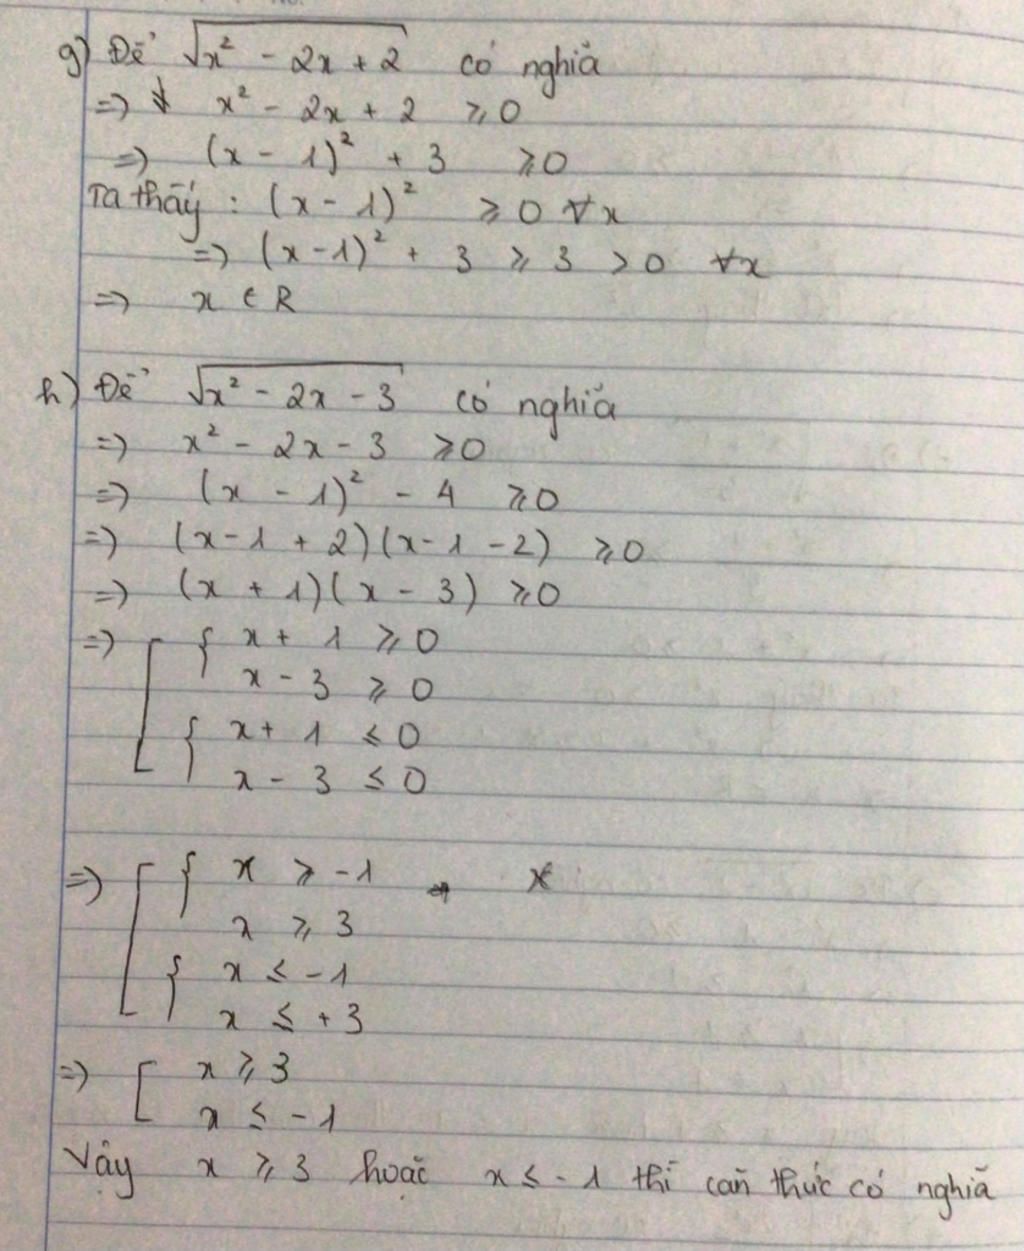 g) Để √(x² - 2x + 2) có nghĩa
=> x² - 2x + 2 ≥ 0
=> (x - 1)² + 3 ≥ 0
Ta thấy : (x - 1)² ≥ 0 ∀x
=> (x - 1)² + 3 ≥ 3 > 0 ∀x
=> x ∈ R
h) Để √(x² - 2x - 3) có nghĩa
=> x² - 2x - 3 ≥ 0
=> (x - 1)² - 4 ≥ 0
=> (x - 1 + 2)(x - 1 - 2) ≥ 0
=> (x + 1)(x - 3) ≥ 0
=> [ { x + 1 ≥ 0
x - 3 ≥ 0
{ x + 1 ≤ 0
x - 3 ≤ 0
=> [ { x ≥ -1 x
x ≥ 3
{ x ≤ -1
x ≤ +3
=> [ x ≥ 3
x ≤ -1
Vậy x ≥ 3 hoặc x ≤ -1 thì căn thức có nghĩa